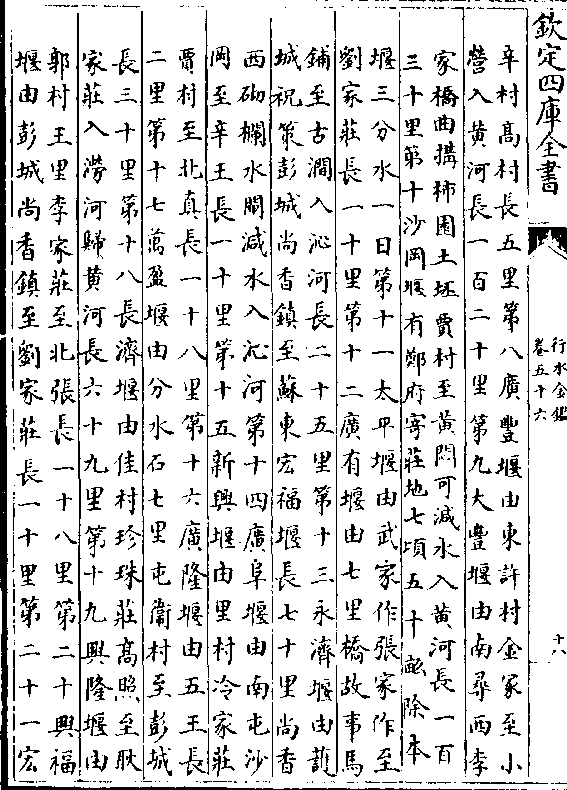 欽定四庫全書
行水金鑑
卷五十六
十六
辛村髙村長五里第八廣豐堰由東許村金冢至小
營入黄河長一百二十里第九大豐堰由南尋西李
家橋曲搆柿園土坯賈村至黄閗可減水入黄河長一百
三十里第十沙岡堰有鄭府寄莊地七頃五十畝除本
堰三分水一日第十一太平堰由武家作張家作至
劉家莊長一十里第十二廣有堰由七里橋故事馬
鋪至古澗入沁河長二十五里第十三永濟堰由
城祝策彭城尚香鎮至蘇東宏福堰長七十里尚香
西砌欄水閘減水入沁河第十四廣阜堰由南屯沙
岡至辛王長一十里第十五新興堰由里村冷家莊
賈村至北真長一十八里第十六廣隆堰由五王長
二里第十七萬盈堰由分水石七里屯衞村至彭城
長三十里第十八長濟堰由佳村珍珠莊髙照至耿
家莊入澇河歸黄河長六十九里第十九興隆堰由
郭村王里李家莊至北張長一十八里第二十興福
堰由彭城尚香鎮至劉家莊長一十里第二十一宏